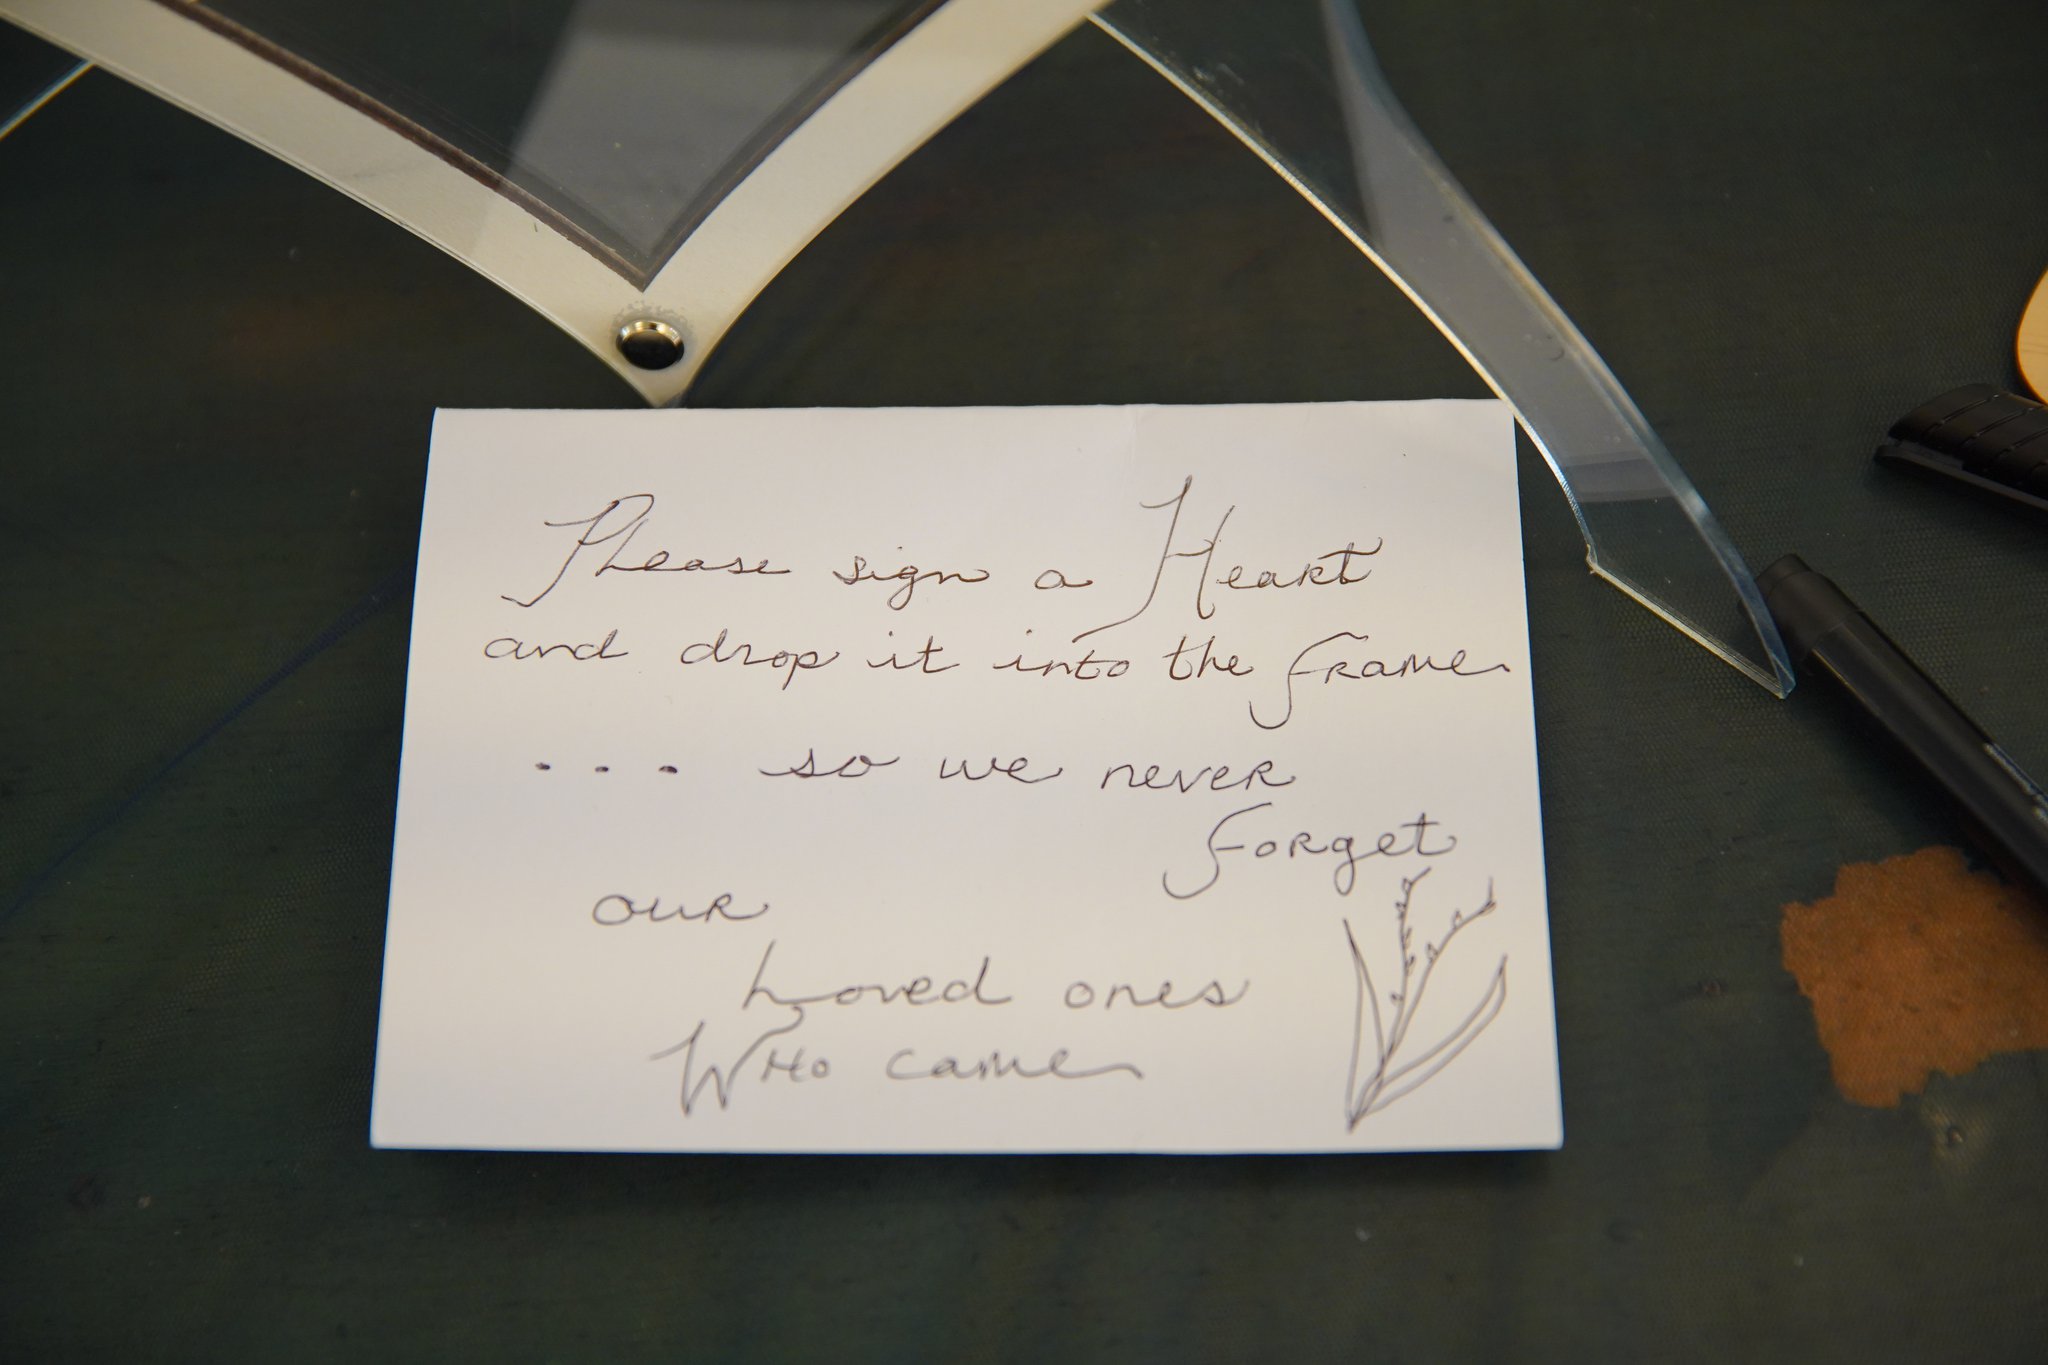 Please sign a Heart
and drop it into the frame
... so we never
forget
our
Loved ones
Who came